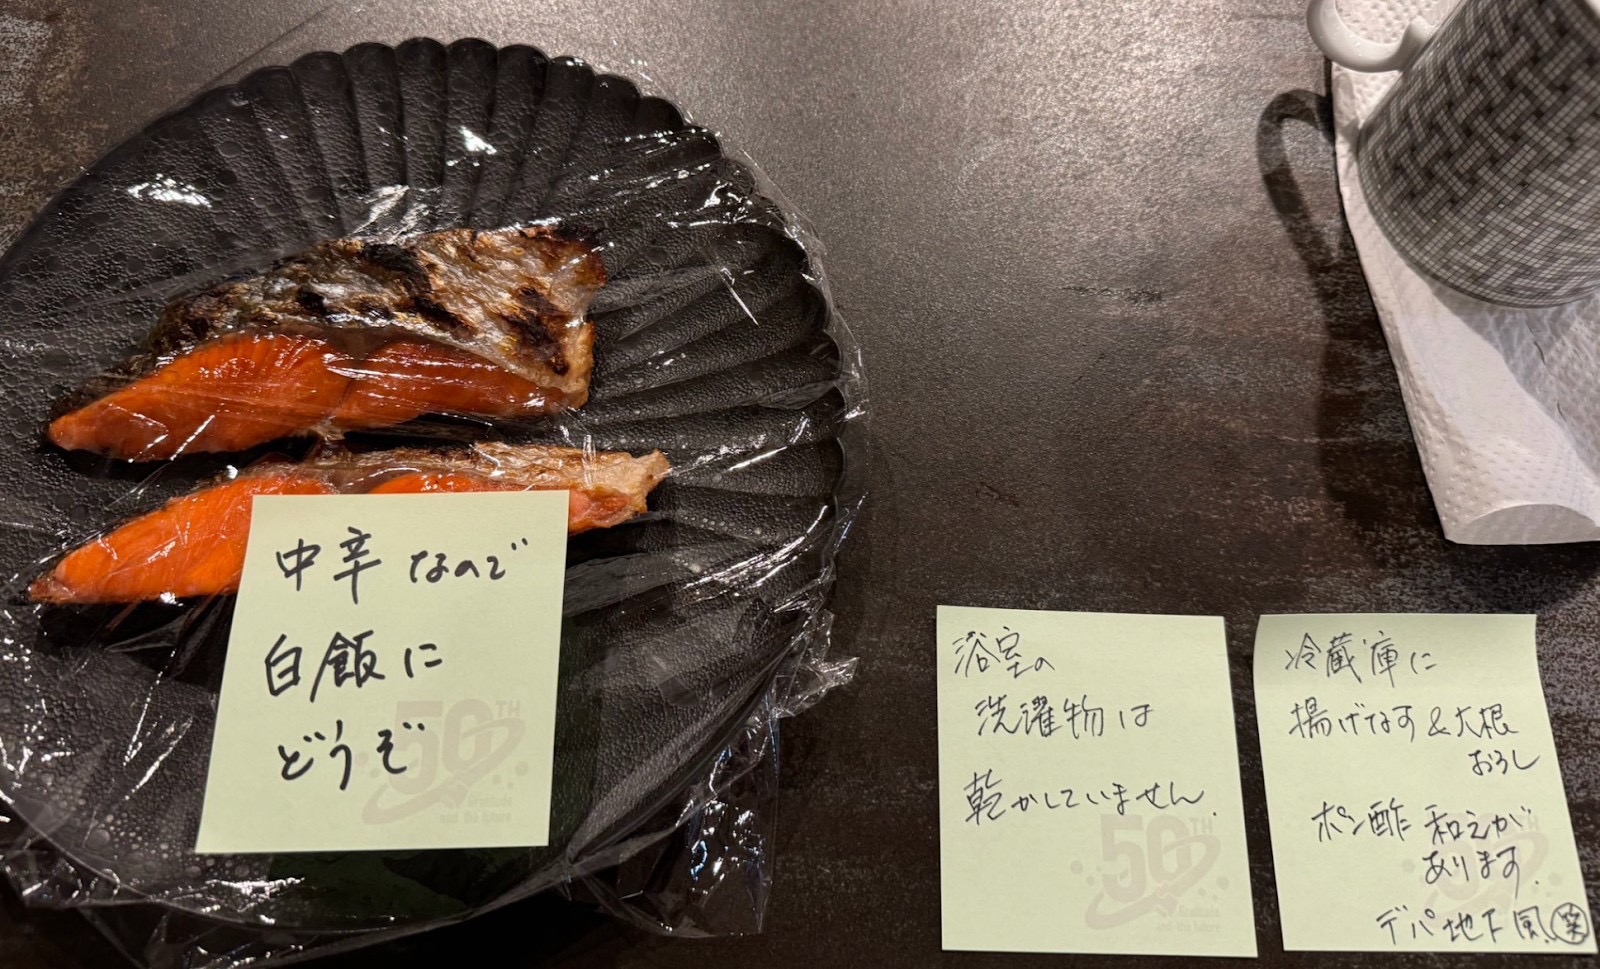 中辛なので
白飯に
どうぞ
50TH
Gratitude
and the future
浴室の
洗濯物は
乾かしていません.
50TH
Gratitude
and the future
冷蔵庫に
揚げなす&大根
おろし
ポン酢和えが
あります.
デパ地下風㊗